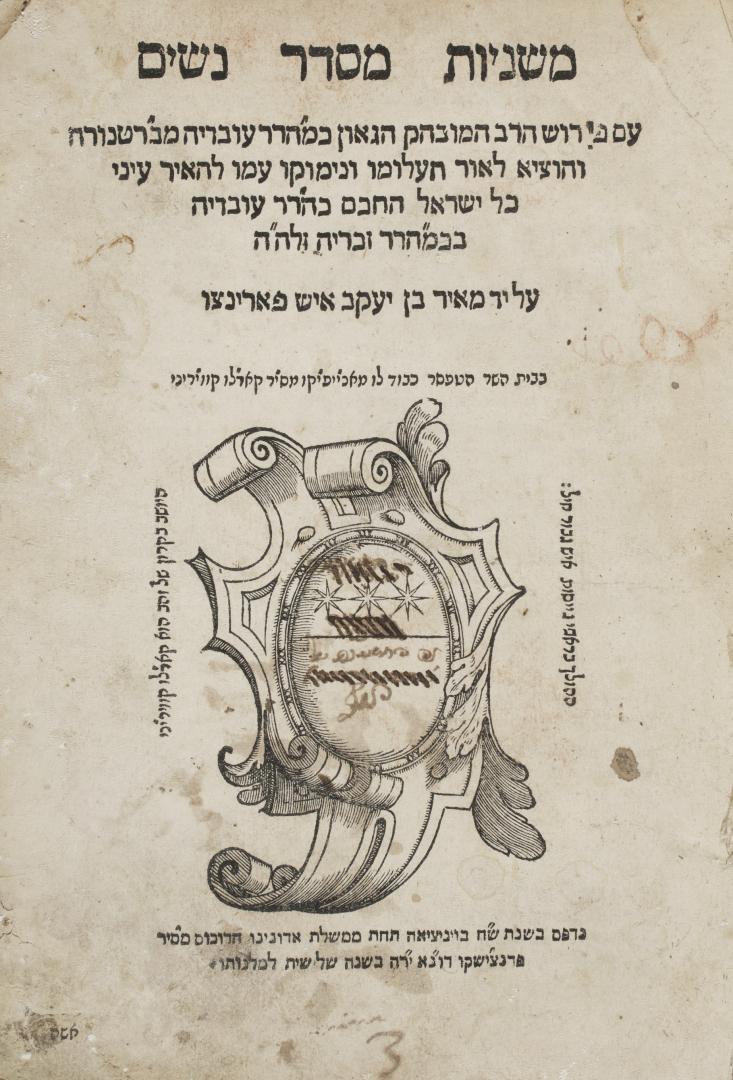 משניות מסדר נשים
עם פירוש הרב המובהק הגאון כמ"הרר עובדיה מברטנורה
והוציא לאור תעלומו ונימוקו עמו להאיר עיני
כל ישראל החכם כה"רר עובדיה
בכמ"הרר זכריה זלה"ה
על יד מאיר בן יעקב איש פארינצו
בבית השר הטפסר כבוד לו מאנייפיקו מסי"ר קארלו קוויריני
ההולך
קארלו קוויריני
נדפס בשנת ש"ח בויניציאה תחת ממשלת אדונינו הדוכוס מסי"ר
פרנצישקו דונא ירה בשנה של שית למלכותו
אשה
3